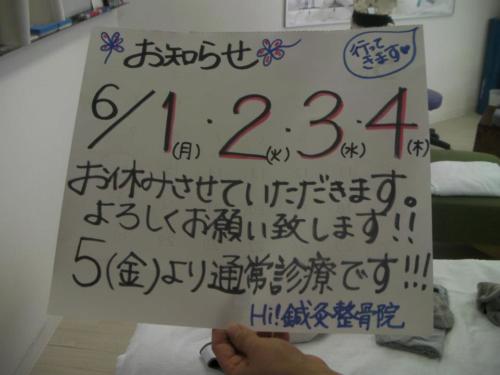 お知らせ
行って
きます♥
6/1(月)・2(火)・3(水)・4(木)
お休みさせていただきます。
よろしくお願い致します!!
5(金)より通常診療です!!!
Hi!鍼灸整骨院